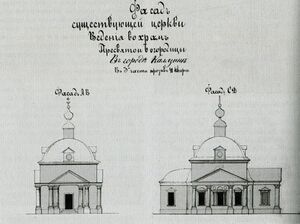 Фасадъ
существующей церкви
Веденія во храмъ
Пресвятой Богородицы
Въ городѣ Калугѣ
Въ части
Фасадъ АВ
Фасадъ СD